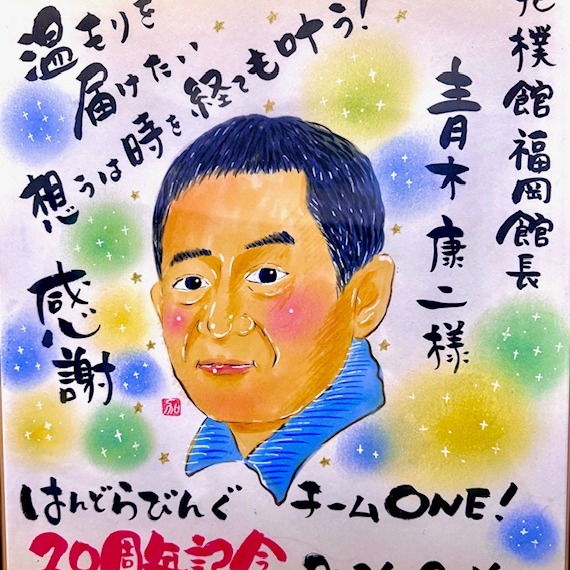 樸館福岡館長
青木康二様
温もりを
届けたい
想うは時を経ても叶う!
感謝
はんどらびんぐ チームONE!
20周年記念